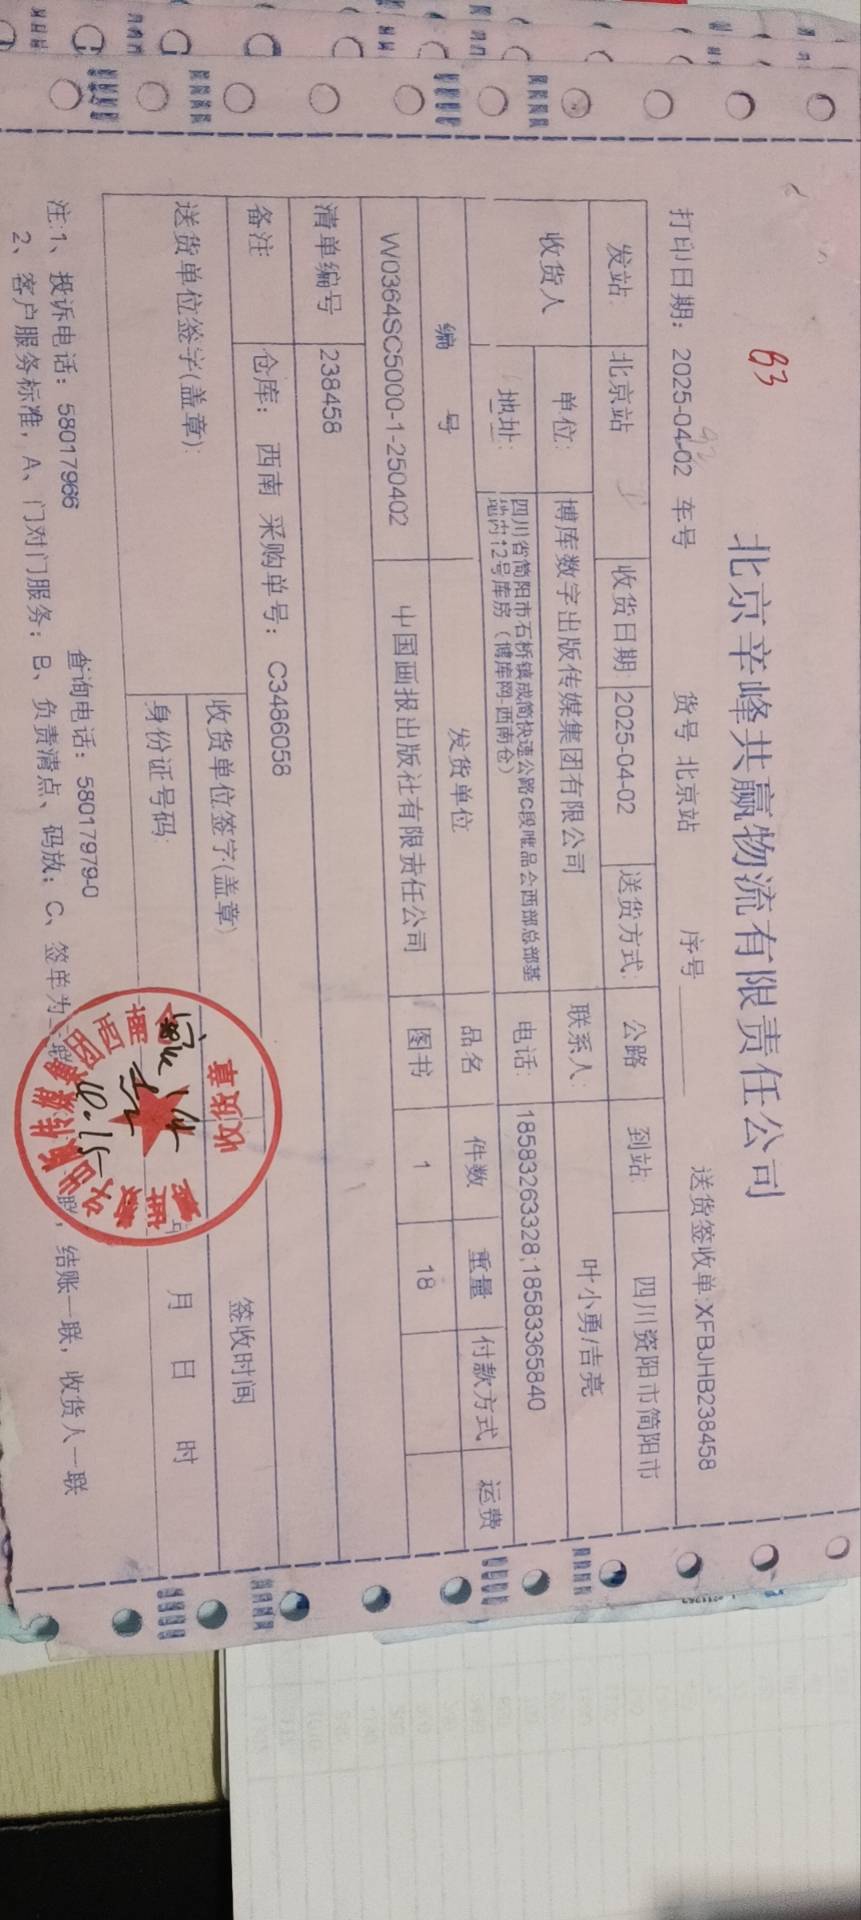 B3
北京辛峰共赢物流有限责任公司
打印日期： 2025-04-02 车号 货号 北京站 序号 送货签收单:XFBJHB238458
发站 北京站 收货日期 2025-04-02 送货方式: 公路 到站: 四川资阳市简阳市
收货人 单位: 博库数字出版传媒集团有限公司 联系人: 叶小勇/吉亮
地址: 四川省简阳市石桥镇成简快速公路C段唯品会西部总部基
地内12号库房（博库网-西南仓）
电话: 18583263328;18583365840
编 号 发货单位 品名 件数 重量 付款方式 运费
W0364SC5000-1-250402 中国画报出版社有限责任公司 图书 1 18
清单编号 238458
备注 仓库： 西南 采购单号： C3486058
送货单位签字(盖章): 收货单位签字(盖章) 签收时间
身份证号码: 年 月 日 时
收货章
查询电话：58017979-0
注:1、投诉电话：58017966
2、客户服务标准，A、门对门服务；B、负责清点、码放；C、签单为三联 结账一联，收货人一联